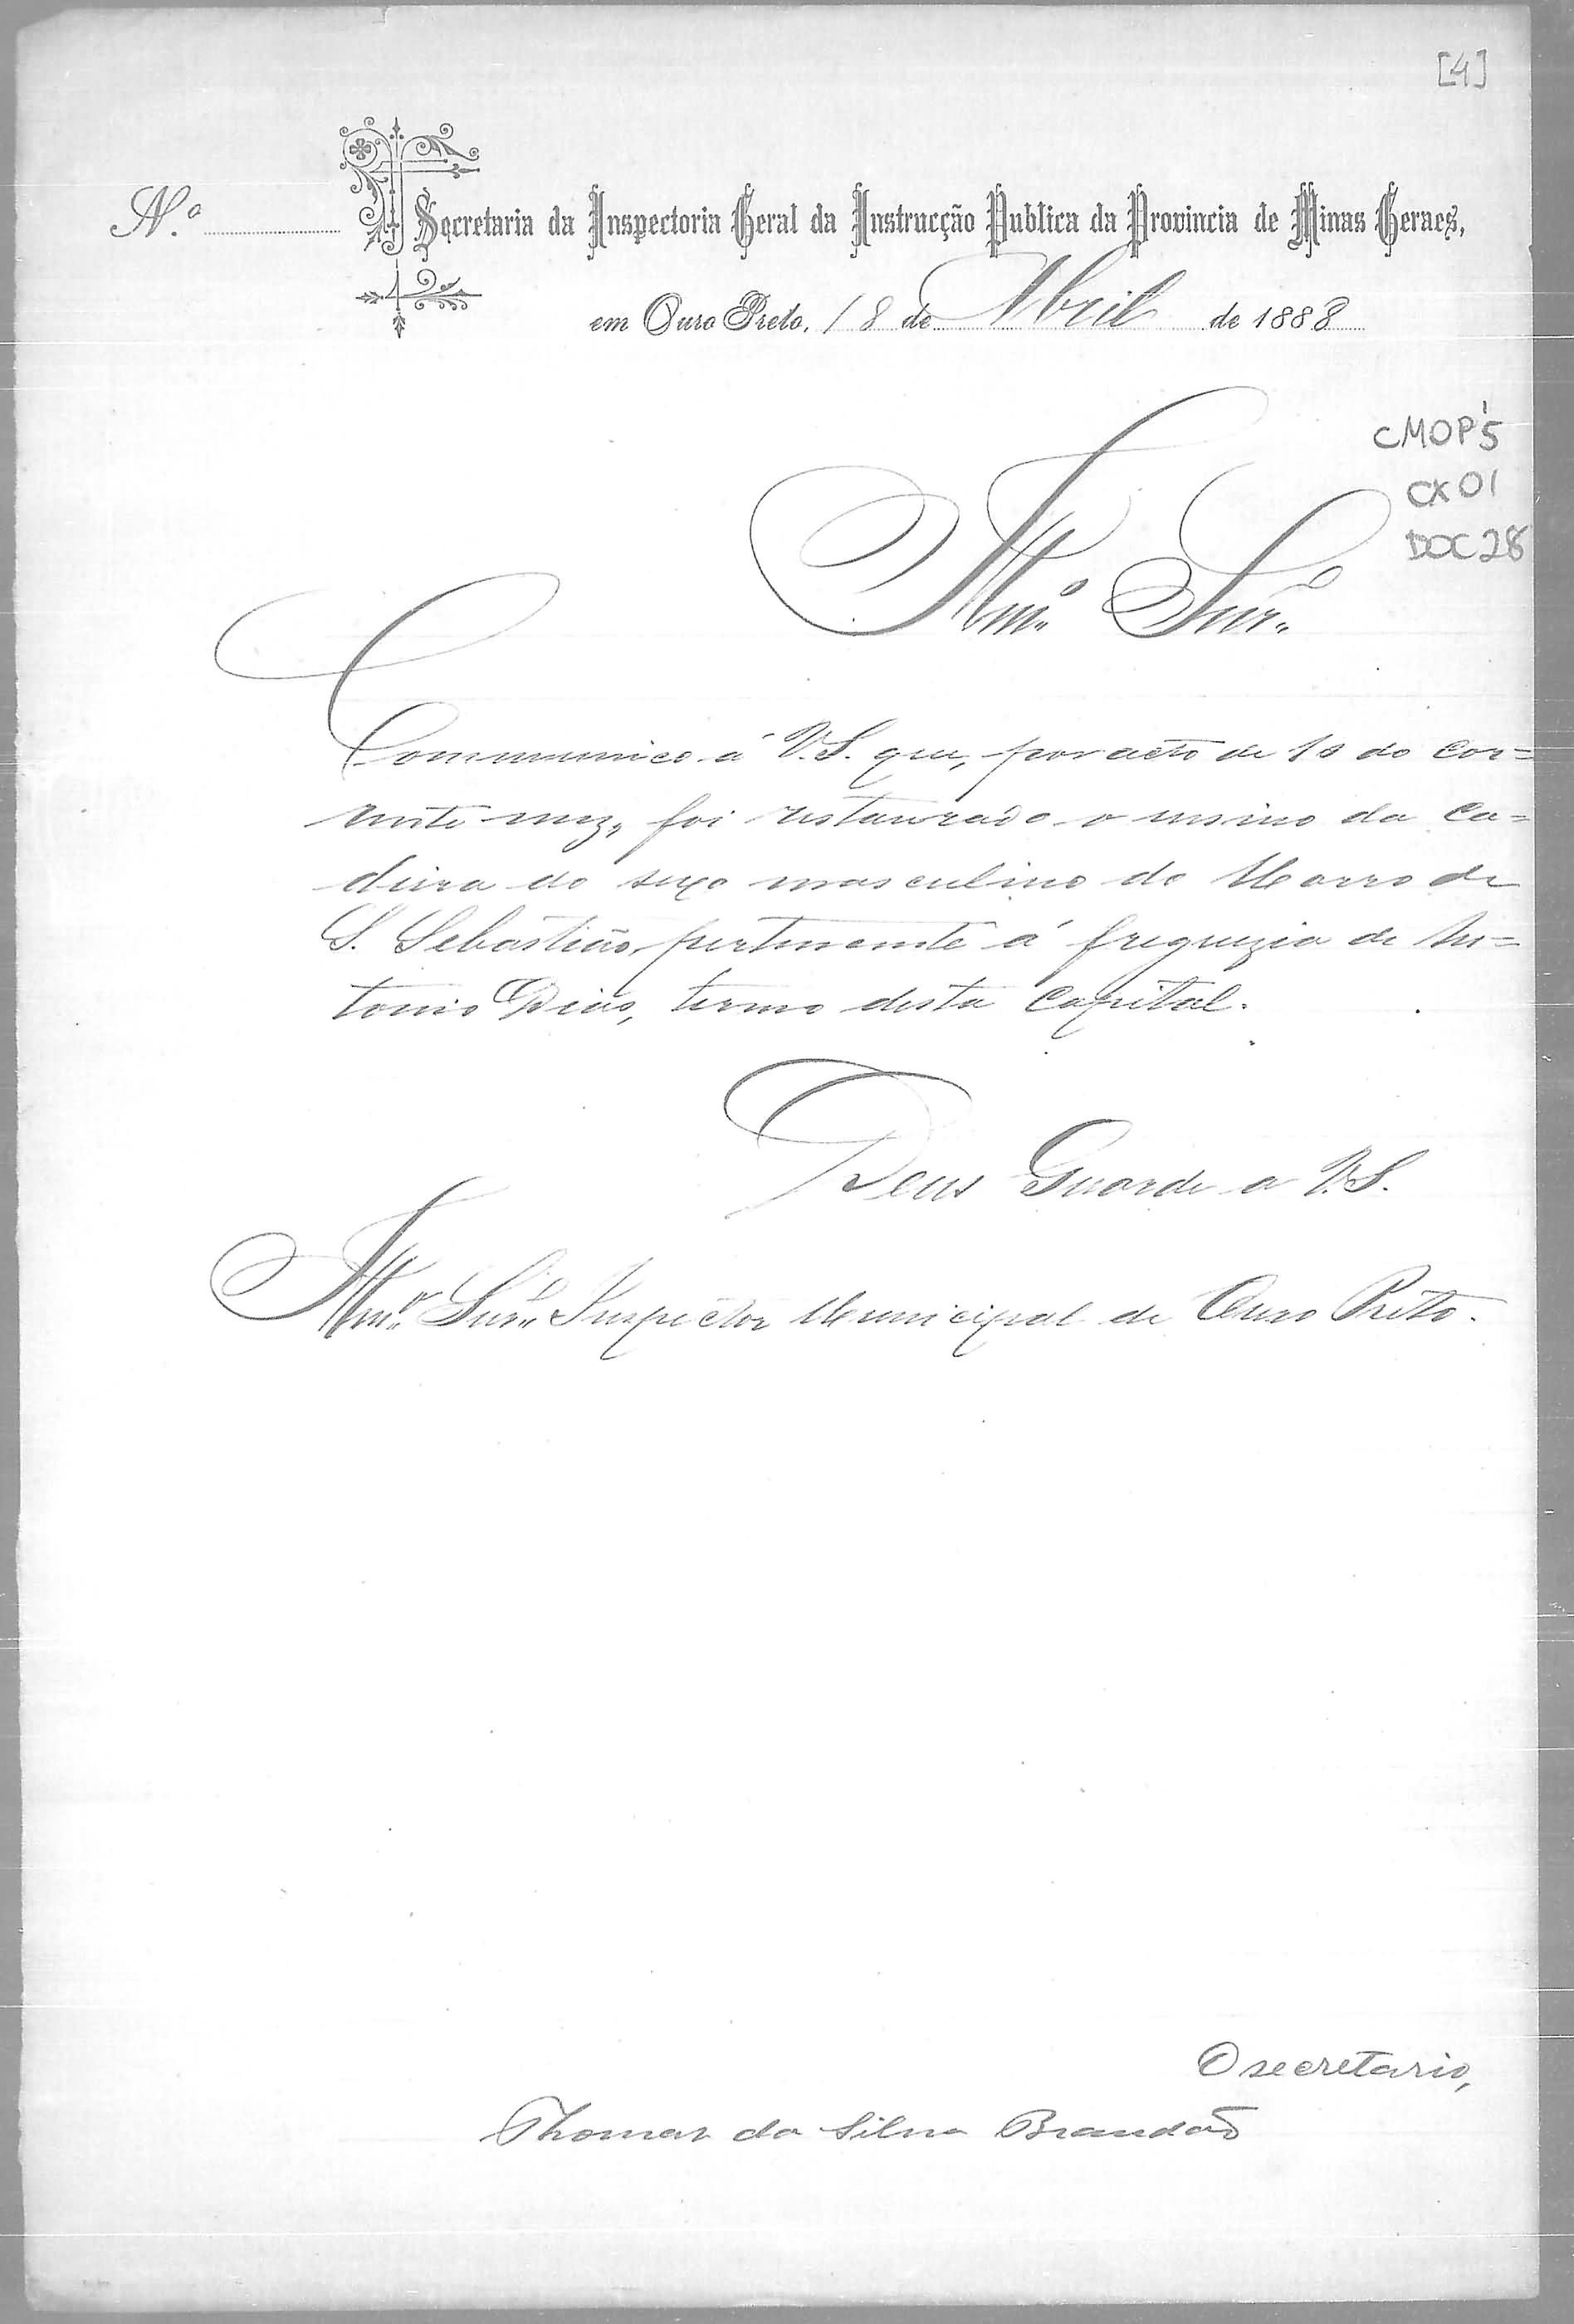 [4]
N.º
Secretaria da Inspectoria Geral da Instrucção Publica da Provincia de Minas Geraes,
em Ouro Preto, 18 de Abril de 1888
CMOP 5
CX 01
DOC 28
Illmº Snrº
Communico á V.S. que, por acto de 10 do cor=
rente mez, foi restaurado o ensino da ca=
deira do sexo masculino do Morro de
S. Sebastião, pertencente á freguezia de An=
tonio Dias, termo desta Capital.
Deus Guarde a V.S.
Illmº Snrº Inspector Municipal de Ouro Preto.
O secretario,
Thomaz da Silva Brandão